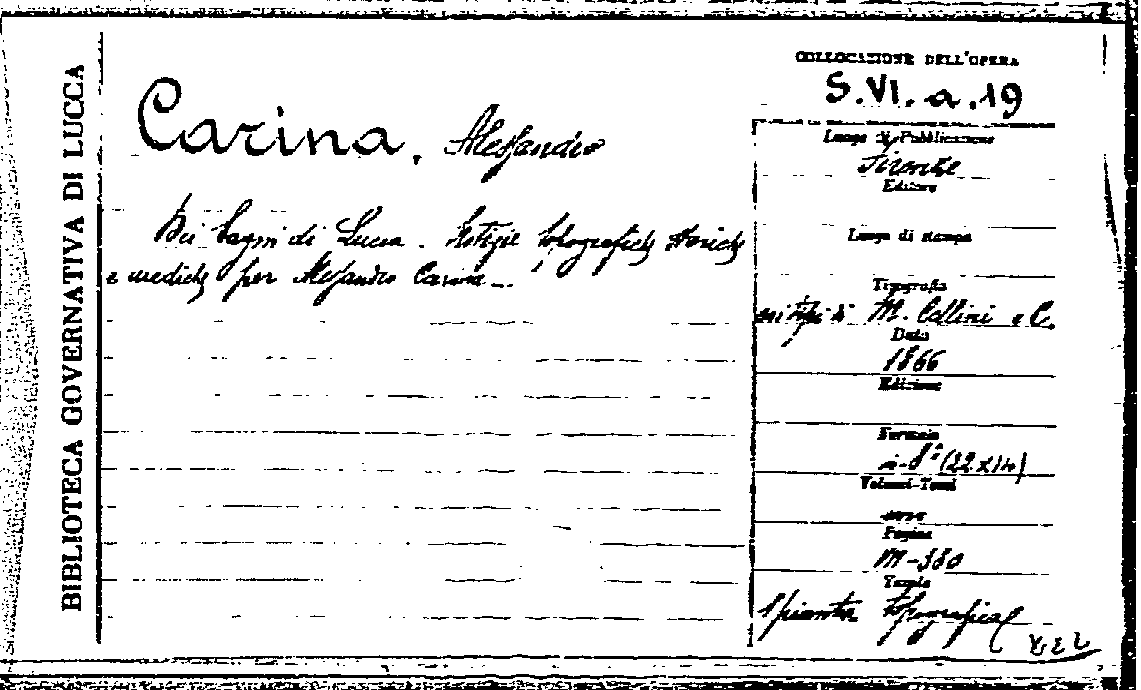 BIBLIOTECA GOVERNATIVA DI LUCCA
COLLOCAZIONE DELL'OPERA
S.VI.a.19
Carina, Alessandro
Dei Bagni di Lucca. Notizie topografiche storiche
e mediche per Alessandro Carina
Luogo di Pubblicazione
Firenze
Editore
Luogo di stampa
Tipografia
coi tipi di M. Cellini e C.
Data
1866
Edizione
Formato
in-8° (22x14)
Volumi-Tomi
uno
Pagine
Tavole
1 pianta topografica